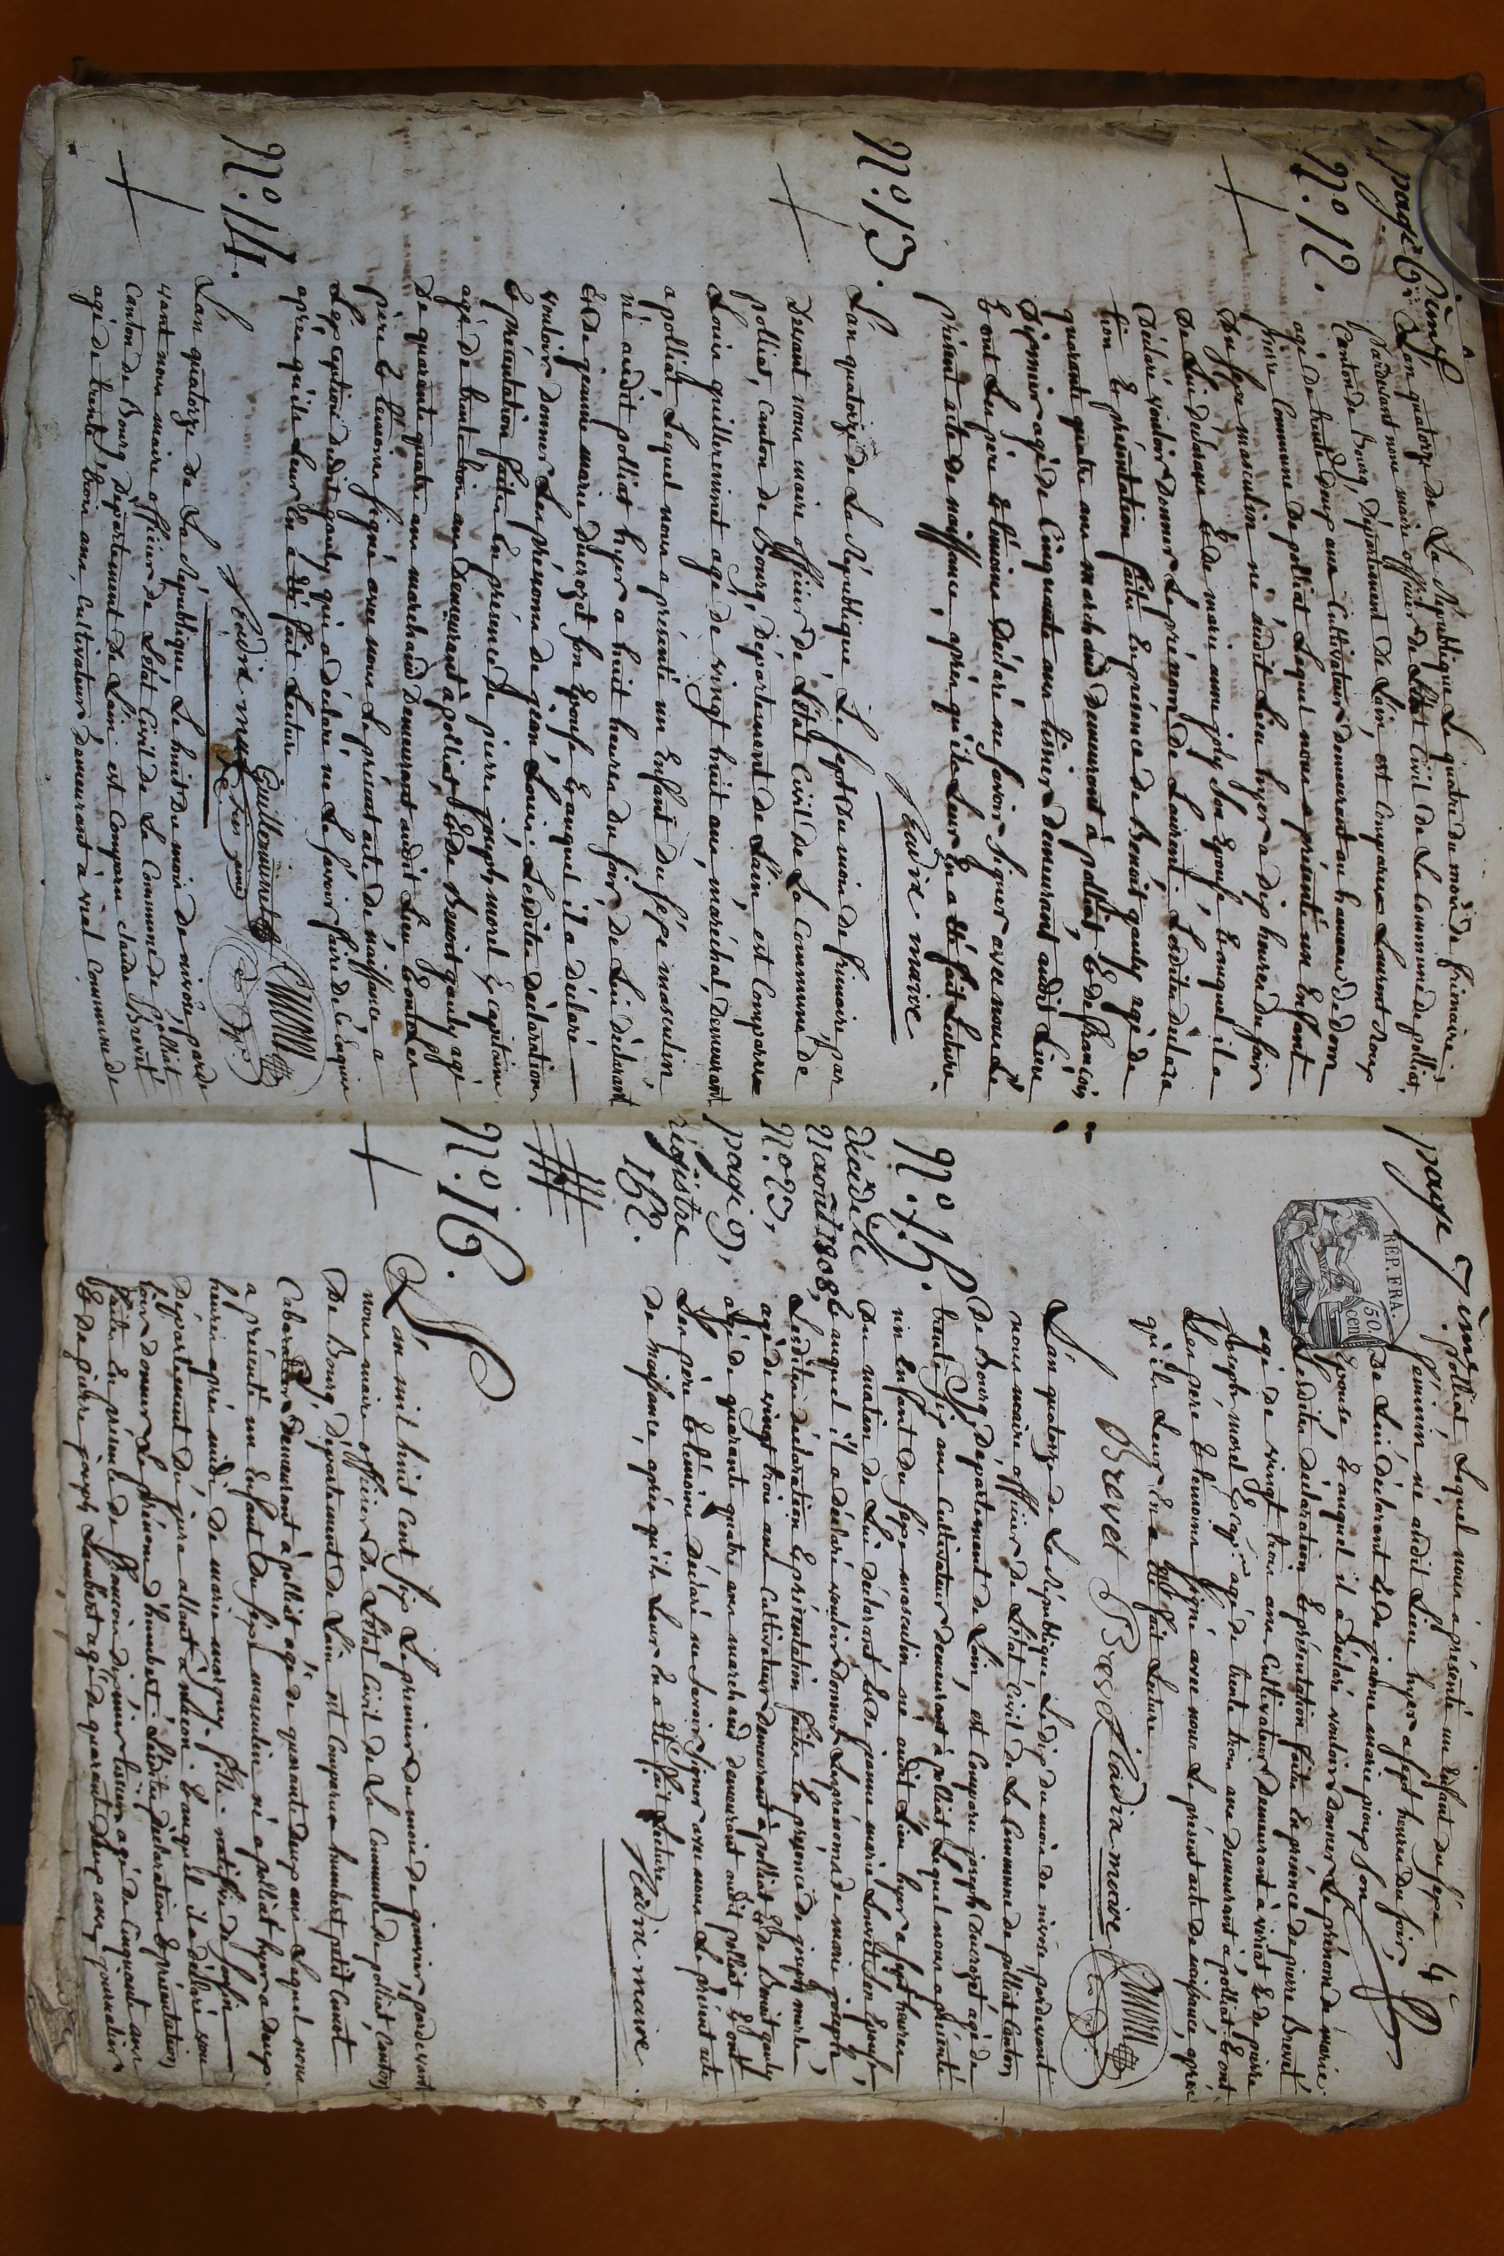 page 6ème
N.° 12.
L'an quatorze de La République Le quatre du mois de frimaire,
pardevant nous maire officier de L'état Civil de La Commune de polliat,
Canton de Bourg, Département de L'ain est Comparu Laurent
agé de trente deux ans Cultivateur demeurant au hameau de
susdite Commune de polliat Lequel nous a présenté un Enfant
Du sexe masculin né audit Lieu hyer a dix heures du soir
De Lui déclarant & de marie anne joly Son Epouse, & auquel il a
Déclaré vouloir donner Le prénom de Laurent. Lesdites déclara
tion & présentation faites En présence de Benoit gauly agé de
quarante quatre ans marchand demeurant à polliat & de françois
agé de Cinquante ans tissier demeurant audit Lieu
& ont Les père & témoins déclaré ne savoir signer avec nous Le
présent acte de naissance, après qu'ils Leur En a été fait Lecture
maire
N.° 13.
L'an quatorze de La République Le sept du mois de frimaire, par
Devant nous maire officier de L'état Civil de La Commune de
polliat, Canton de Bourg, Département de L'ain, est Comparu
Louis guilleminet agé de vingt huit ans, maréchal, demeurant
a polliat, Lequel nous a présenté un Enfant du sexe masculin,
né audit polliat hyer a huit heures du soir de Lui déclarant
& de jeanne marie ducrozet son Epouse & auquel il a déclaré
vouloir donner Les prénoms de jean Louis. Lesdites déclaration
& présentation faites En présence de pierre joseph morel Ex capitaine
agé de trente trois ans demeurant à polliat, & de Benoit gauly agé
de quarante quatre ans marchand demeurant audit Lieu & ont Les
père & témoins signé avec nous Le présent acte de naissance a
L'exception dudit gauly qui a déclaré ne Le savoir faire de ce enquis
après qu'ils Leur En a été fait Lecture
Guilleminet
maire
N.° 14.
L'an quatorze de La République Le huit du mois de nivôse, parde
vant nous maire officier de L'état Civil de La Commune de polliat
Canton de Bourg Département de L'ain. est Comparu claude Brevet
agé de trente trois ans, Cultivateur demeurant à Commune de
page 7ème
polliat, Lequel nous a présenté un Enfant du sexe
féminin né audit Lieu hyer a sept heures du soir,
De Lui déclarant & de jeanne marie pioux Son
Epouse, & auquel il a déclaré vouloir donner Le prénom de marie.
Lesdites déclaration & présentation faites En présence de pierre Brevet
agé de vingt trois ans Cultivateur demeurant à viriat & de pierre
joseph morel Ex cap.e agé de trente trois ans demeurant à polliat, & ont
Les père & témoins signé avec nous Le présent acte de naissance, après
qu'ils Leur En a été fait Lecture
REP. FRA.
50 cen
Brevet
maire
N.° 15.
décédé le
août 1808,
N.° 23,
page 9,
régistre
L'an quatorze de La République Le dix du mois de nivôse, pardevant
nous maire officier de L'état Civil de La Commune de polliat Canton
De Bourg, Département de L'ain, est Comparu joseph ducrozet agé de
trente six ans Cultivateur demeurant à polliat Lequel nous a présenté
un Enfant du sexe masculin né audit Lieu hyer a sept heures
Du matin de Lui déclarant & de jeanne marie Son Epouse,
& auquel il a déclaré vouloir donner Les prénoms de marie joseph
Lesdites déclaration & présentation faites En présence de joseph
agé de vingt trois ans Cultivateur demeurant à polliat & de Benoit gauly
agé de quarante quatre ans marchand demeurant audit polliat & ont
Les père & témoins déclaré ne savoir signer avec nous Le présent acte
de naissance, après qu'ils Leur En a été fait Lecture
maire
N.° 16.
L'an mil huit Cent six Le premier du mois de janvier, pardevant
nous maire officier de L'état Civil de La Commune de polliat, Canton
De Bourg Département de L'ain est Comparu humbert petit
Cabaretier demeurant à polliat agé de quarante deux ans Lequel nous
a présenté un Enfant du sexe masculin né a polliat hyer a deux
heures après midi de marie fille native de
Département du jura allant à macon. & auquel il a déclaré vou
loir donner Le prénom d'humbert. Lesdites déclaration & présentation
faites En présence de françois tissier agé de Cinquante ans
& de pierre joseph Lambert agé de quarante deux ans journalier